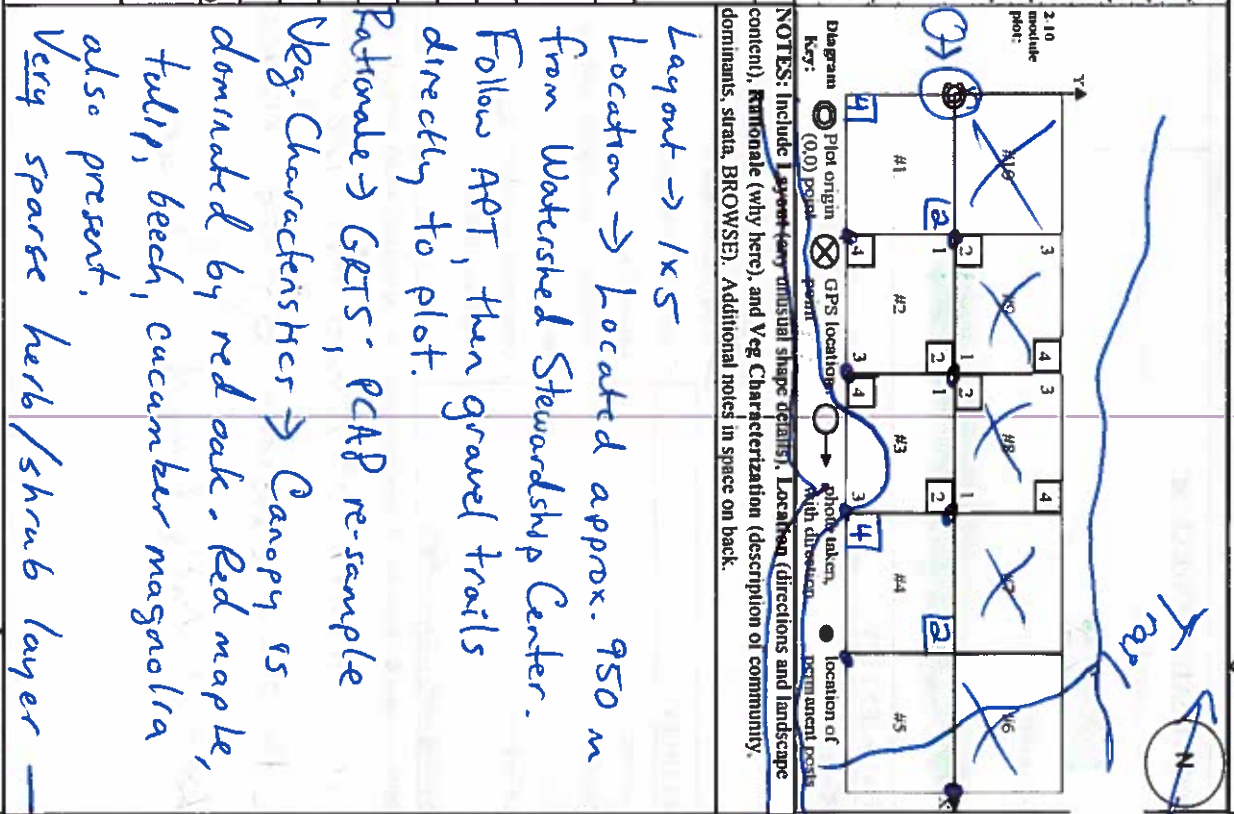 2×10
module
plot:
Y
#10
#9
#8
#7
#6
3
3
4
3
4
2
1
2
1
2
1
2
1
2
2
#1
#2
#3
#4
#5
4
4
3
4
3
4
X
Trail
N
Diagram Key: Plot origin (0,0) point GPS location point photo taken, with direction location of permanent posts
NOTES: Include Layout (any unusual shape details), Location (directions and landscape
content), Rationale (why here), and Veg Characterization (description of community,
dominants, strata, BROWSE). Additional notes in space on back.
Layout → 1x5
Location → Located approx. 950 m
from Watershed Stewardship Center.
Follow APT, then gravel trails
directly to plot.
Rationale → GRTS; PCAP re-sample
Veg. Characteristics → Canopy is
dominated by red oak. Red maple,
tulip, beech, cucumber magnolia
also present.
Very sparse herb/shrub layer —